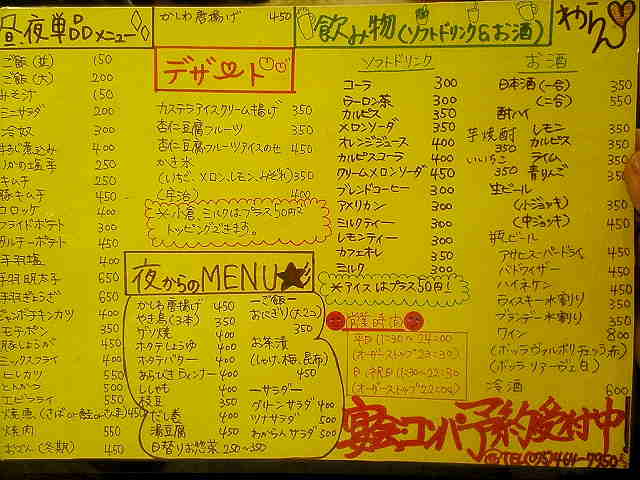 昼、夜単品メニュー
ご飯(並) 150
ご飯(大) 200
みそ汁 150
ミニサラダ 200
冷奴 300
400
250
キムチ 250
豚キムチ 450
コロッケ 400
フライドポテト 300
450
手羽塩 400
手羽明太子 650
手羽ぎょうざ 650
ジャンボチキンカツ 400
モチポン 350
豚しょうが 450
ミックスフライ 400
ヒレカツ 550
とんかつ 500
エビフライ 550
450
焼肉 550
おでん(冬期) 450
かしわ唐揚げ 450
デザート
カステラアイスクリーム揚げ 350
杏仁豆腐フルーツ 350
杏仁豆腐フルーツアイスのせ 450
かき氷
(いちご、メロン、レモン、みぞれ) 350
(宇治) 400
※小倉、ミルクはプラス50円で
トッピングできます。
夜からのMENU★
かしわ唐揚げ 450
やき鳥(3本) 350
ゲソ焼 400
ホタテしょうゆ 400
ホタテバター 400
あらびきウィンナー 400
ししゃも 400
枝豆 350
だし巻 400
湯豆腐 450
日替りお惣菜 250〜350
ーご飯ー
おにぎり(大2コ)
350
お茶漬
(しゃけ、梅、昆布)
450
ーサラダー
グリーンサラダ 400
ツナサラダ 500
わからんサラダ 500
飲み物(ソフトドリンク&お酒)
わからん
ソフトドリンク
コーラ 300
ウーロン茶 300
カルピス 350
メロンソーダ 350
オレンジジュース 400
カルピスコーラ 400
クリームメロンソーダ 450
ブレンドコーヒー 300
アメリカン 300
ミルクティー 300
レモンティー 300
カフェオレ 350
ミルク 300
※アイスはプラス50円!
営業時間
平日 11:30〜24:00
(オーダーストップ23:30)
日・祝日 11:30〜22:30
(オーダーストップ22:00)
お酒
日本酒(一合) 350
(二合) 550
酎ハイ
レモン 350
カルピス 350
ライム 350
青りんご 350
芋焼酎 350
いいちこ 350
生ビール
(小ジョッキ) 350
(中ジョッキ) 450
瓶ビール
アサヒスーパードライ 450
バドワイザー 450
ハイネケン 450
ウイスキー水割り 350
ブランデー水割り 350
ワイン 800
(ポッラヴァルポリチェッラ赤)
(ボッラソアーヴェ白)
冷酒 600
宴会・コンパ予約受付中!
TEL(075)461-7950